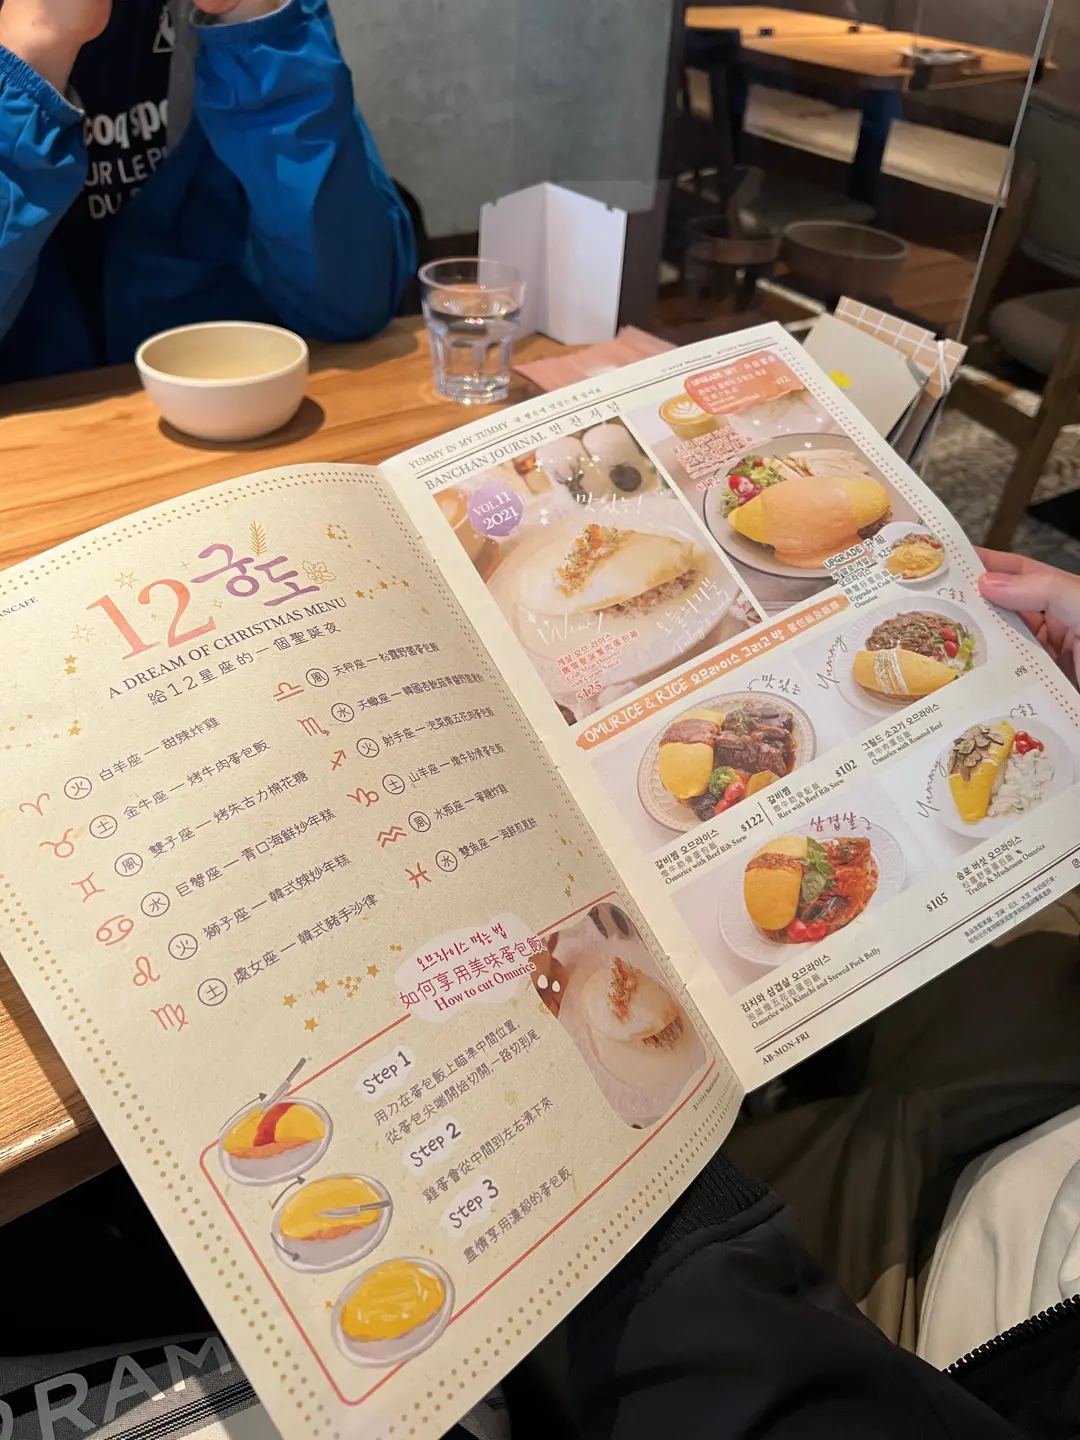 coq spo
UR LE PL
DU
ANCAFE
12궁도
A DREAM OF CHRISTMAS MENU
給12星座的一個聖誕夜
火 白羊座－甜辣炸雞
土 金牛座－烤牛肉蛋包飯
風 雙子座－烤朱古力棉花糖
水 巨蟹座－青口海鮮炒年糕
火 獅子座－韓式辣炒年糕
土 處女座－韓式豬手沙律
風 天秤座－松露野菌蛋包飯
水 天蠍座－韓國
火 射手座－泡菜燉五花肉蛋包飯
土 山羊座－燉牛肋骨蛋包飯
風 水瓶座－炸雞
水 雙魚座－海鮮煎蔥餅
오므라이스 먹는 법
如何享用美味蛋包飯
How to cut Omurice
Step 1
用刀在蛋包飯上瞄準中間位置,
從蛋包尖端開始切開,一路切到尾
Step 2
雞蛋會從中間到左右滑下來
Step 3
盡情享用濃郁的蛋包飯
YUMMY IN MY TUMMY
BANCHAN JOURNAL 반찬저널
VOL.11
2021
맛있는!
게살 오므라이스
$125
UPGRADE SET
UPGRADE 升級
$25
오므라이스
Upgrade to Crab Roe
Omurice
OMURICE & RICE 오므라이스 그리고 밥 蛋包飯及飯類
맛있는
갈비찜 오므라이스
燉牛肋骨蛋包飯
Omurice with Beef Rib Stew
$122
갈비찜
燉牛肋骨配飯
Rice with Beef Rib Stew
$102
Yummy
그릴드 소고기 오므라이스
烤牛肉蛋包飯
Omurice with Roasted Beef
$98
삼겹살
김치와 삼겹살 오므라이스
泡菜燉五花肉蛋包飯
Omurice with Kimchi and Stewed Pork Belly
$105
Yummy
송로 버섯 오므라이스
松露野菌蛋包飯
Truffle & Mushroom Omurice
AB-MON-FRI
DRAM